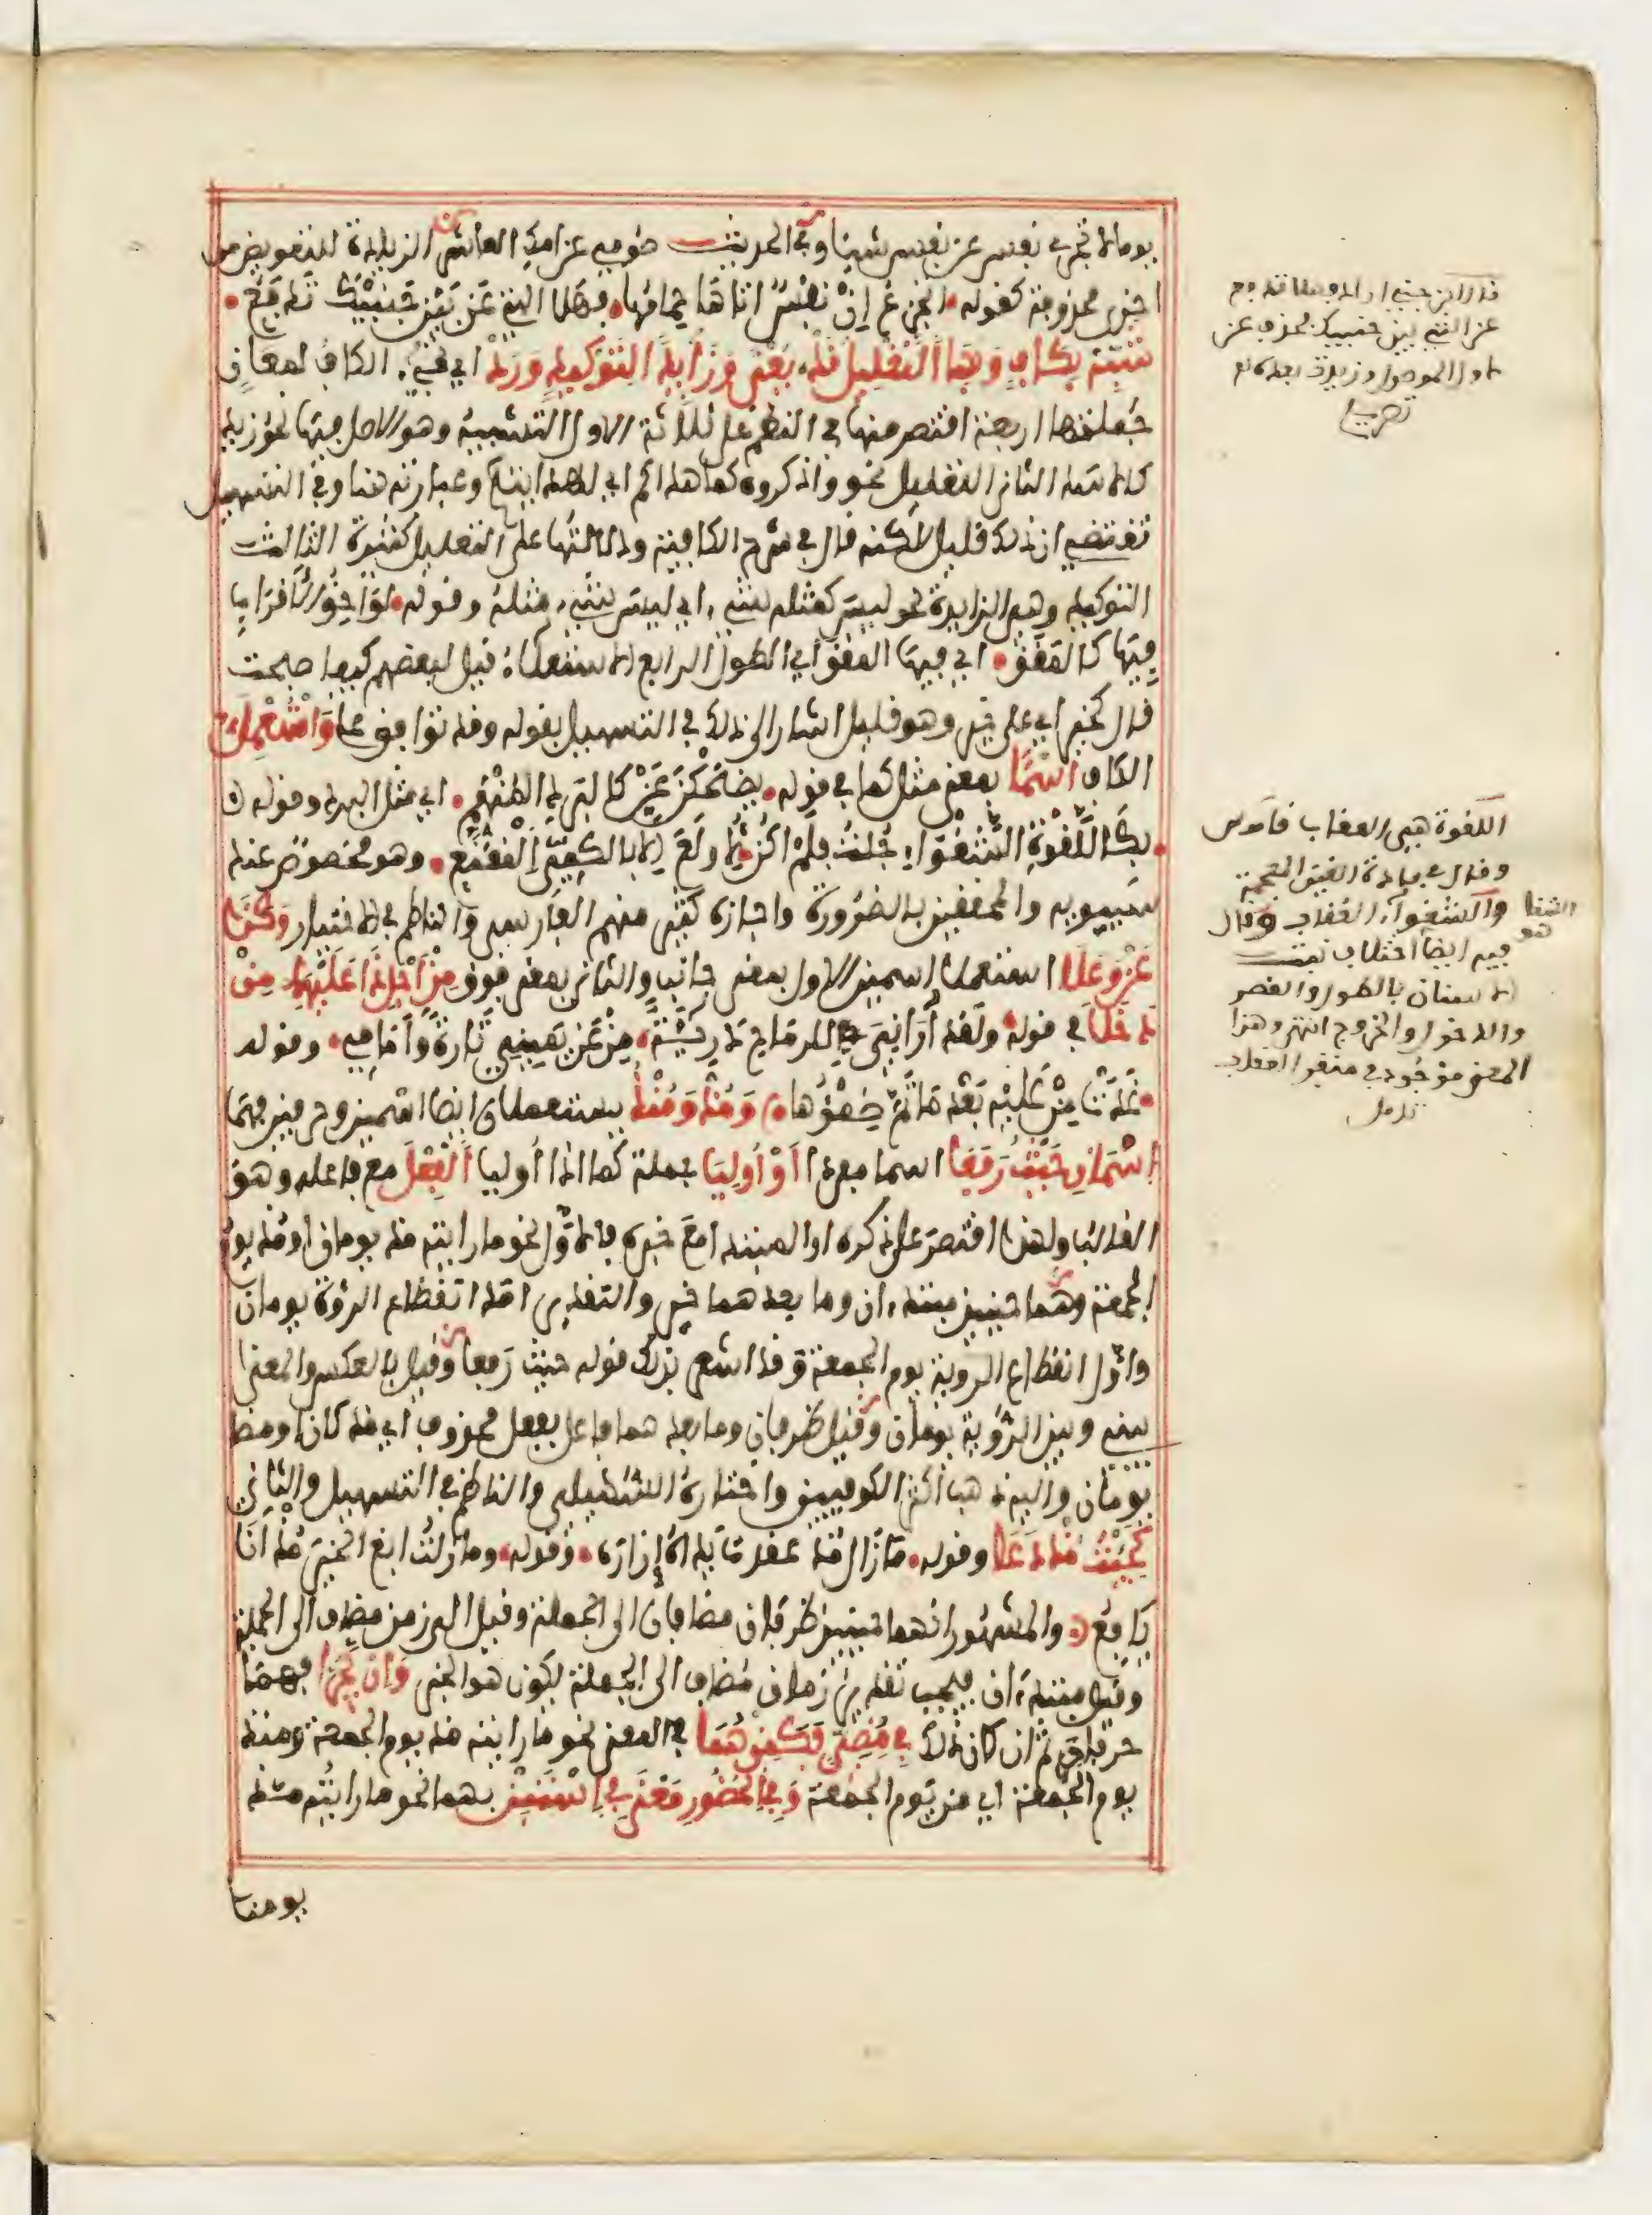 يوما لا تجزى نفس عن نفس شيئا وفى الحديث صومى عن امك العاشر الزيادة للتعويض من
اخرى محذوفة كقوله اتجزع إن نفس اتاها حمامها فهلا التى عن بين جنبيك تدفع
شبه بكاف وبها التعليل قد يعنى وزائدا لتوكيد ورد أي تجىء الكاف لمعان
جملتها اربعة اقتصر منها فى النظم على ثلاثة الاول التشبيه وهو الاصل فيها نحو زيد
كالاسد الثانى التعليل نحو واذكروه كما هداكم اي لهدايته وعبارته هنا وفى التسهيل
تقتضى ان ذلك قليل لكنه قال فى شرح الكافية ودلالتها على التعليل كثيرة الثالث
التوكيد وهى الزايدة نحو ليس كمثله شىء اي ليس شىء مثله وقوله لواحق الاقراب
فيها كالمقق اي فيها المقق أي الطول الرابع الاستعلاء قيل لبعضهم كيف اصبحت
قال كخير اي على خير وهو قليل اشار الى ذلك فى التسهيل بقوله وقد توافق على واستعمل
الكاف اسما بمعنى مثل كما فى قوله يضحكن عن كالبرد المنهم اي مثل البرد وقوله
بكا للقوة الشغواء جلت فلم اكن لأولع الا بالكمي المقنع وهو مخصوص عند
سيبويه والمحققين بالضرورة واجازه كثير منهم الفارسى والناظم فى الاختيار وكذا
عن وعلى استعملا اسمين الاول بمعنى جانب والثانى بمعنى فوق من اجل ذا عليهما من
دخلا فى قوله ولقد أرانى للرماح دريئة من عن يمينى تارة وأمامى وقوله
غدت من عليه بعد ما تم ظمؤها ومذ ومنذ يستعملان ايضا اسمين وحرفين فهما
اسمان حيث رفعا اسما مفردا أو أوليا جملة كما اذا أوليا الفعل مع فاعله وهو
الغالب ولهذا اقتصر على ذكره او المبتدا مع خبره فالاول نحو ما رايته مذ يومان او مذ يوم
الجمعة وهما حينئذ مبتدءان وما بعدهما خبر والتقدير امد انقطاع الرؤية يومان
واول انقطاع الروية يوم الجمعة وقد اشعر بذلك قوله حيث رفعا وقيل بالعكس والمعنى
بينى وبين الرؤية يومان وقيل ظرفان وما بعدهما فاعل بفعل محذوف اي مذ كان او مضى
يومان واليه ذهب اكثر الكوفيين واختاره السهيلى والناظم فى التسهيل والثانى
كجئت مذ دعا وقوله ما زال مذ عقدت يداه إزاره وقوله وما زلت ابغى الخير مذ انا
يافع والمشهور انهما حينئذ ظرفان مضافان الى الجملة وقيل الى زمن مضاف الى الجملة
وقيل مبتدءان فيجب تقدير زمان مضاف الى الجملة يكون هو الخبر وان يجرا فهما
حرفان ثم ان كان ذلك فى مضى فكمن هما فى المعنى نحو ما رايته مذ يوم الجمعة ومنذ
يوم الجمعة اي من يوم الجمعة وفى الحضور معنى فى استبن بهما نحو ما رايته مذ
يومنا
قال ابن جنى اراد فهلا تدفع
عن التى بين جنبيك فحذف عن
من اول الموصول وزيدت بعده
تصريح
اللقوة هى العقاب قاموس
وقال فى مادة الغين المعجمة
والشغواء العقاب وقال
الشغا هو
فيه ايضا اختلاف نبتت
الاسنان بالطول والقصر
والدخول والخروج انتهى وهذا
المعنى موجود فى منقر العقاب
تامل